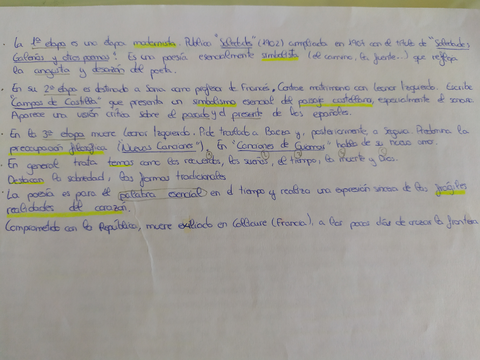 · La 1ª etapa es una etapa modernista. Publica "Soledades" (1902) ampliada en 1907 con el título de "Soledades.
Galerías y otros poemas". Es una poesía esencialmente simbolista (el camino, la fuente...) que refleja
la angustia y desazón del poeta.
· En su 2ª etapa es destinado a Soria como profesor de Francés. Contrae matrimonio con Leonor Izquierdo. Escribe
"Campos de Castilla" que presenta un simbolismo esencial del paisaje castellano, especialmente el soriano.
Aparece una visión crítica sobre el pasado y el presente de los españoles.
· En la 3ª etapa muere Leonor Izquierdo. Pide traslado a Baeza y, posteriormente, a Segovia. Predomina la
preocupación filosófica ("Nuevas Canciones"). En "Canciones de Guiomar" habla de su nuevo amor.
· En general trata temas como los recuerdos, los sueños, el tiempo, la muerte y Dios.
Destacan la sobriedad, las formas tradicionales
· La poesía es para él palabra esencial en el tiempo y realiza una expresión sincera de las
realidades del corazón.
Comprometido con la República, muere exiliado en Colliure (Francia), a los pocos días de cruzar la frontera